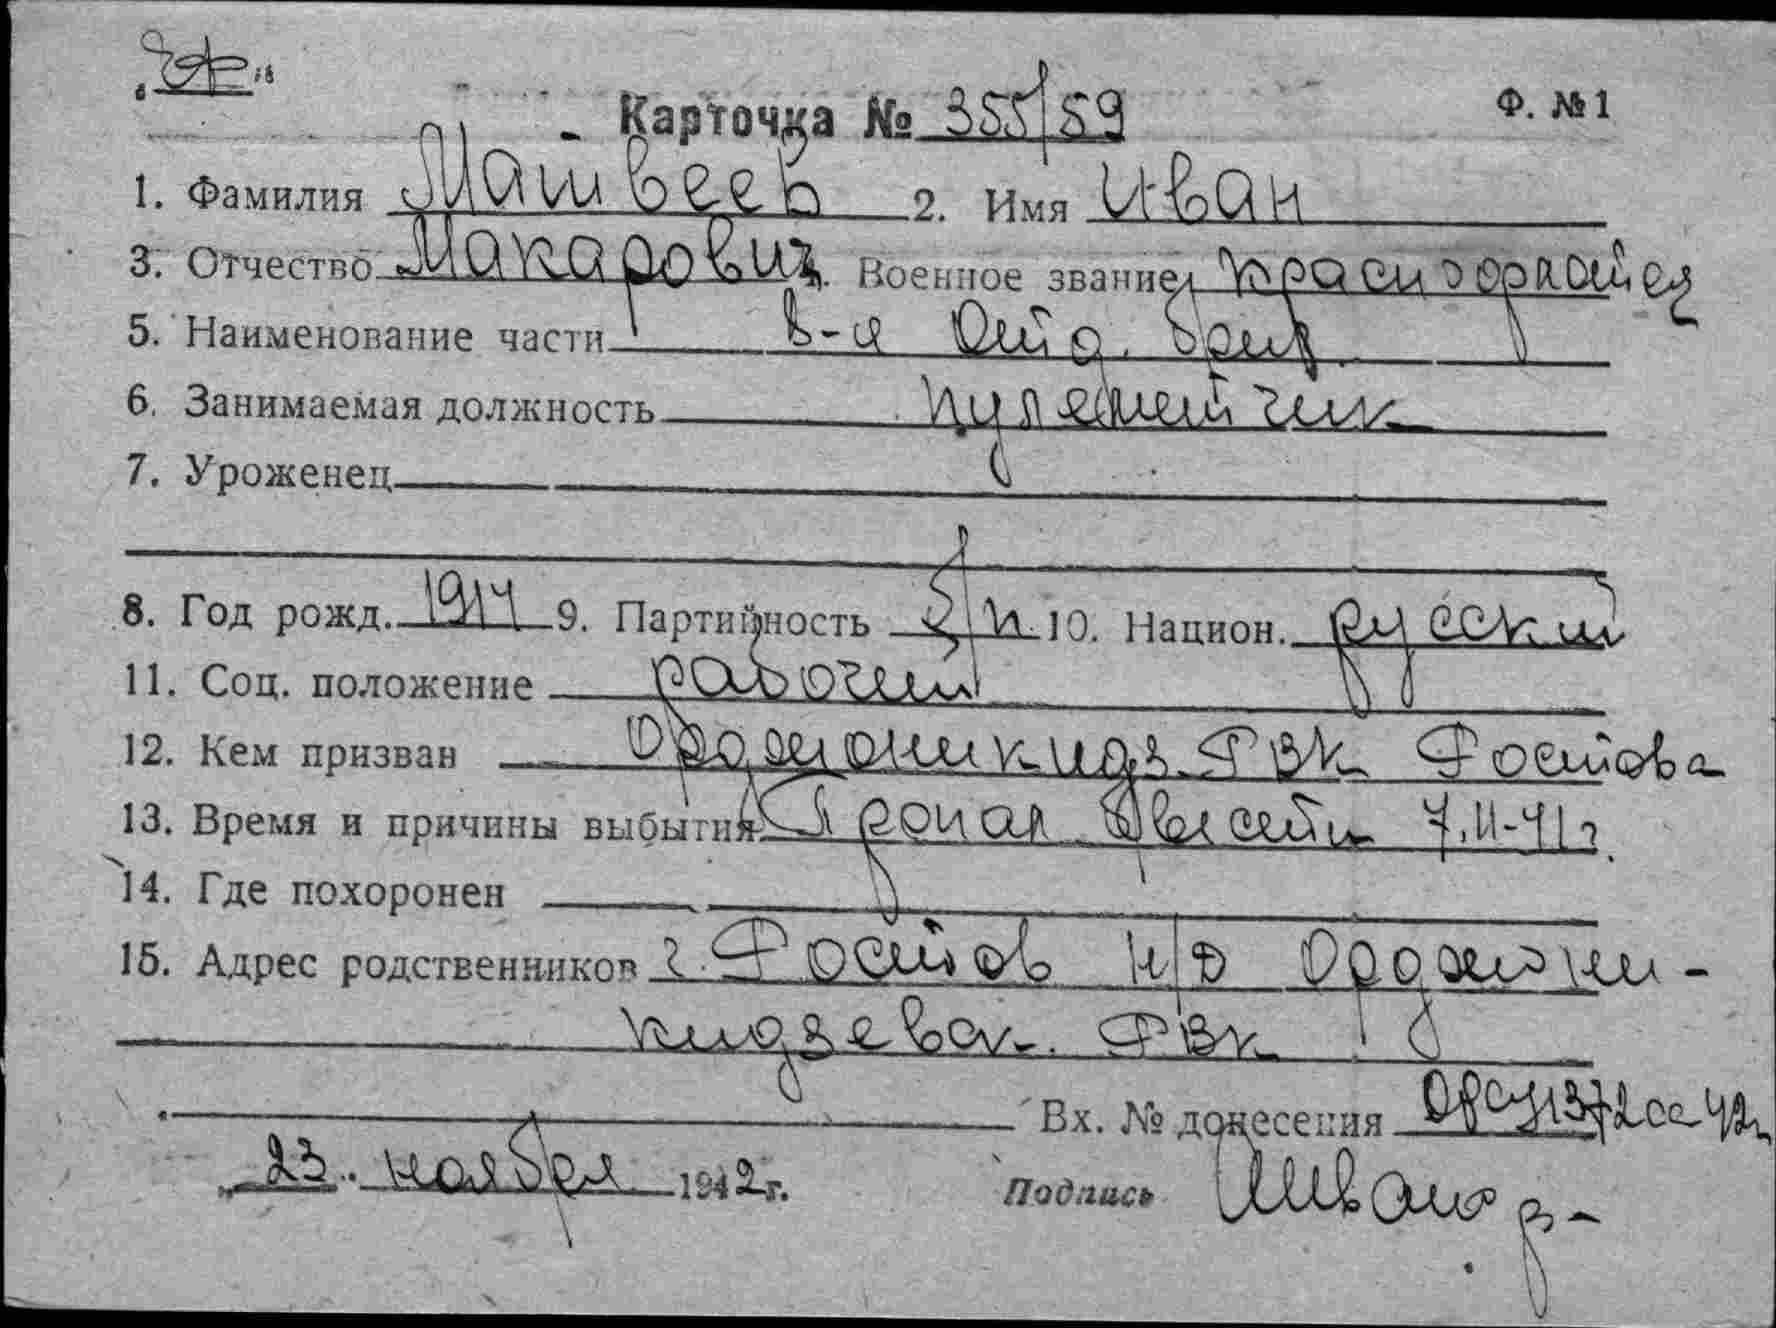 Карточка № 355/59 Ф. №1
1. Фамилия Матвеев 2. Имя Иван
3. Отчество Макарович. Военное звание красноармеец
5. Наименование части 8-я Отд. бриг
6. Занимаемая должность пулеметчик
7. Уроженец
8. Год рожд. 1914 9. Партийность б/п 10. Национ. русский
11. Соц. положение рабочий
12. Кем призван Орджоникидз. РВК Ростова
13. Время и причины выбытия Пропал без вести 4.11-41г
14. Где похоронен
15. Адрес родственников г. Ростов н/Д Орджони-
кидзевск. РВК
Вх. № донесения
23 ноября 1942 г. Подпись